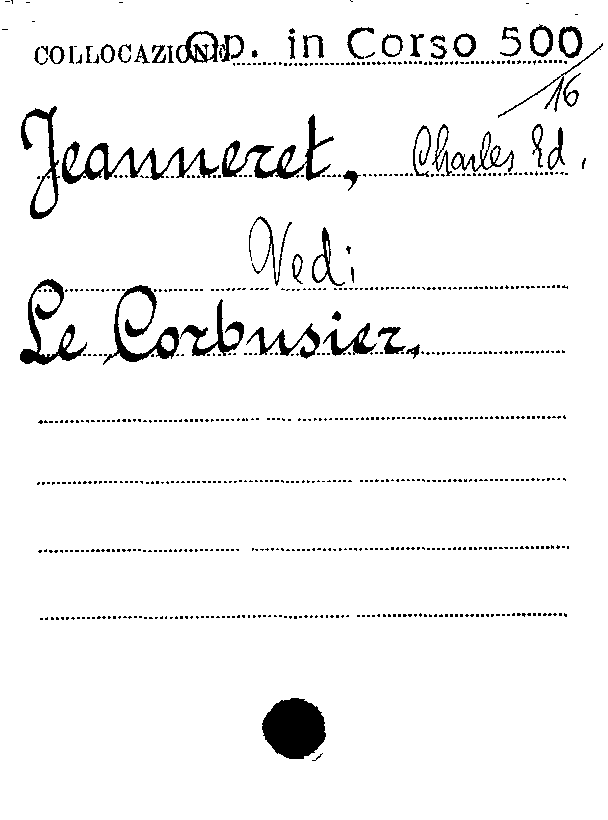 COLLOCAZIONE Op. in Corso 500
/16
Jeanneret, Charles Ed.
Vedi
Le Corbusier,